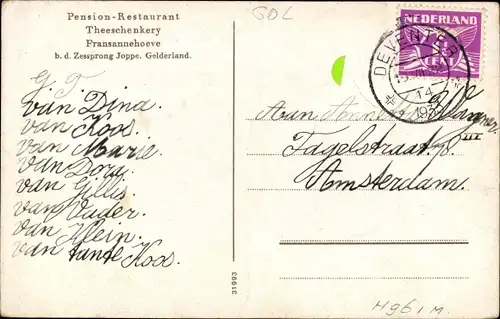 Pension-Restaurant
Theeschenkery
Fransannehoeve
b. d. Zessprong Joppe. Gelderland.
G. F.
van Dina.
van Koos.
van Marie.
van Dora.
van Gillis.
van Vader.
van Klein.
van tante Koos.
31993
GDL
NEDERLAND
CENT
DEVENTER
14
193
Aan Anne
Fagelstraat 8 III
Amsterdam.
H961M.